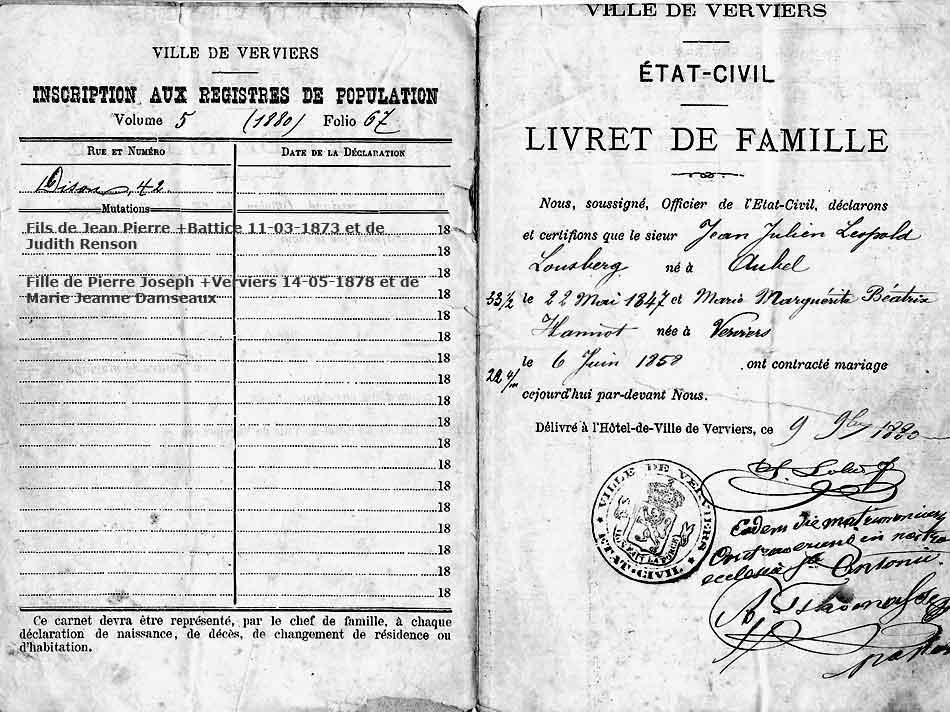 VILLE DE VERVIERS
INSCRIPTION AUX REGISTRES DE POPULATION
Volume 5 (1880) Folio 67
RUE ET NUMÉRO
DATE DE LA DÉCLARATION
Dison, 42
Mutations
Fils de Jean Pierre +Battice 11-03-1873 et de
18
Judith Renson
18
18
Fille de Pierre Joseph +Verviers 14-05-1878 et de
Marie Jeanne Damseaux
18
18
18
18
18
18
18
18
18
18
18
18
18
18
18
Ce carnet devra être représenté, par le chef de famille, à chaque
déclaration de naissance, de décès, de changement de résidence ou
d'habitation.
VILLE DE VERVIERS
ÉTAT-CIVIL
LIVRET DE FAMILLE
Nous, soussigné, Officier de l'Etat-Civil, déclarons
et certifions que le sieur Jean Julien Leopold
Lousberg né à Aubel
33 1/2 le 22 Mai 1847 et Marie Marguérite Béatrix
Hannot née à Verviers
le 6 Juin 1858 ont contracté mariage
22
cejourd'hui par-devant Nous.
Délivré à l'Hôtel-de-Ville de Verviers, ce 9 9bre 1880
VILLE DE VERVIERS
ETAT-CIVIL
Eadem die matrimonium
contraxerunt in nostra
ecclesia Sti Antonii.